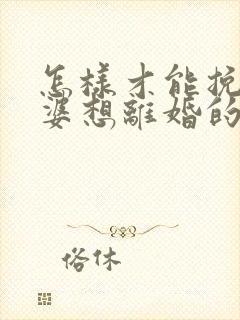 怎樣才能挽
婆想離婚的
俗休